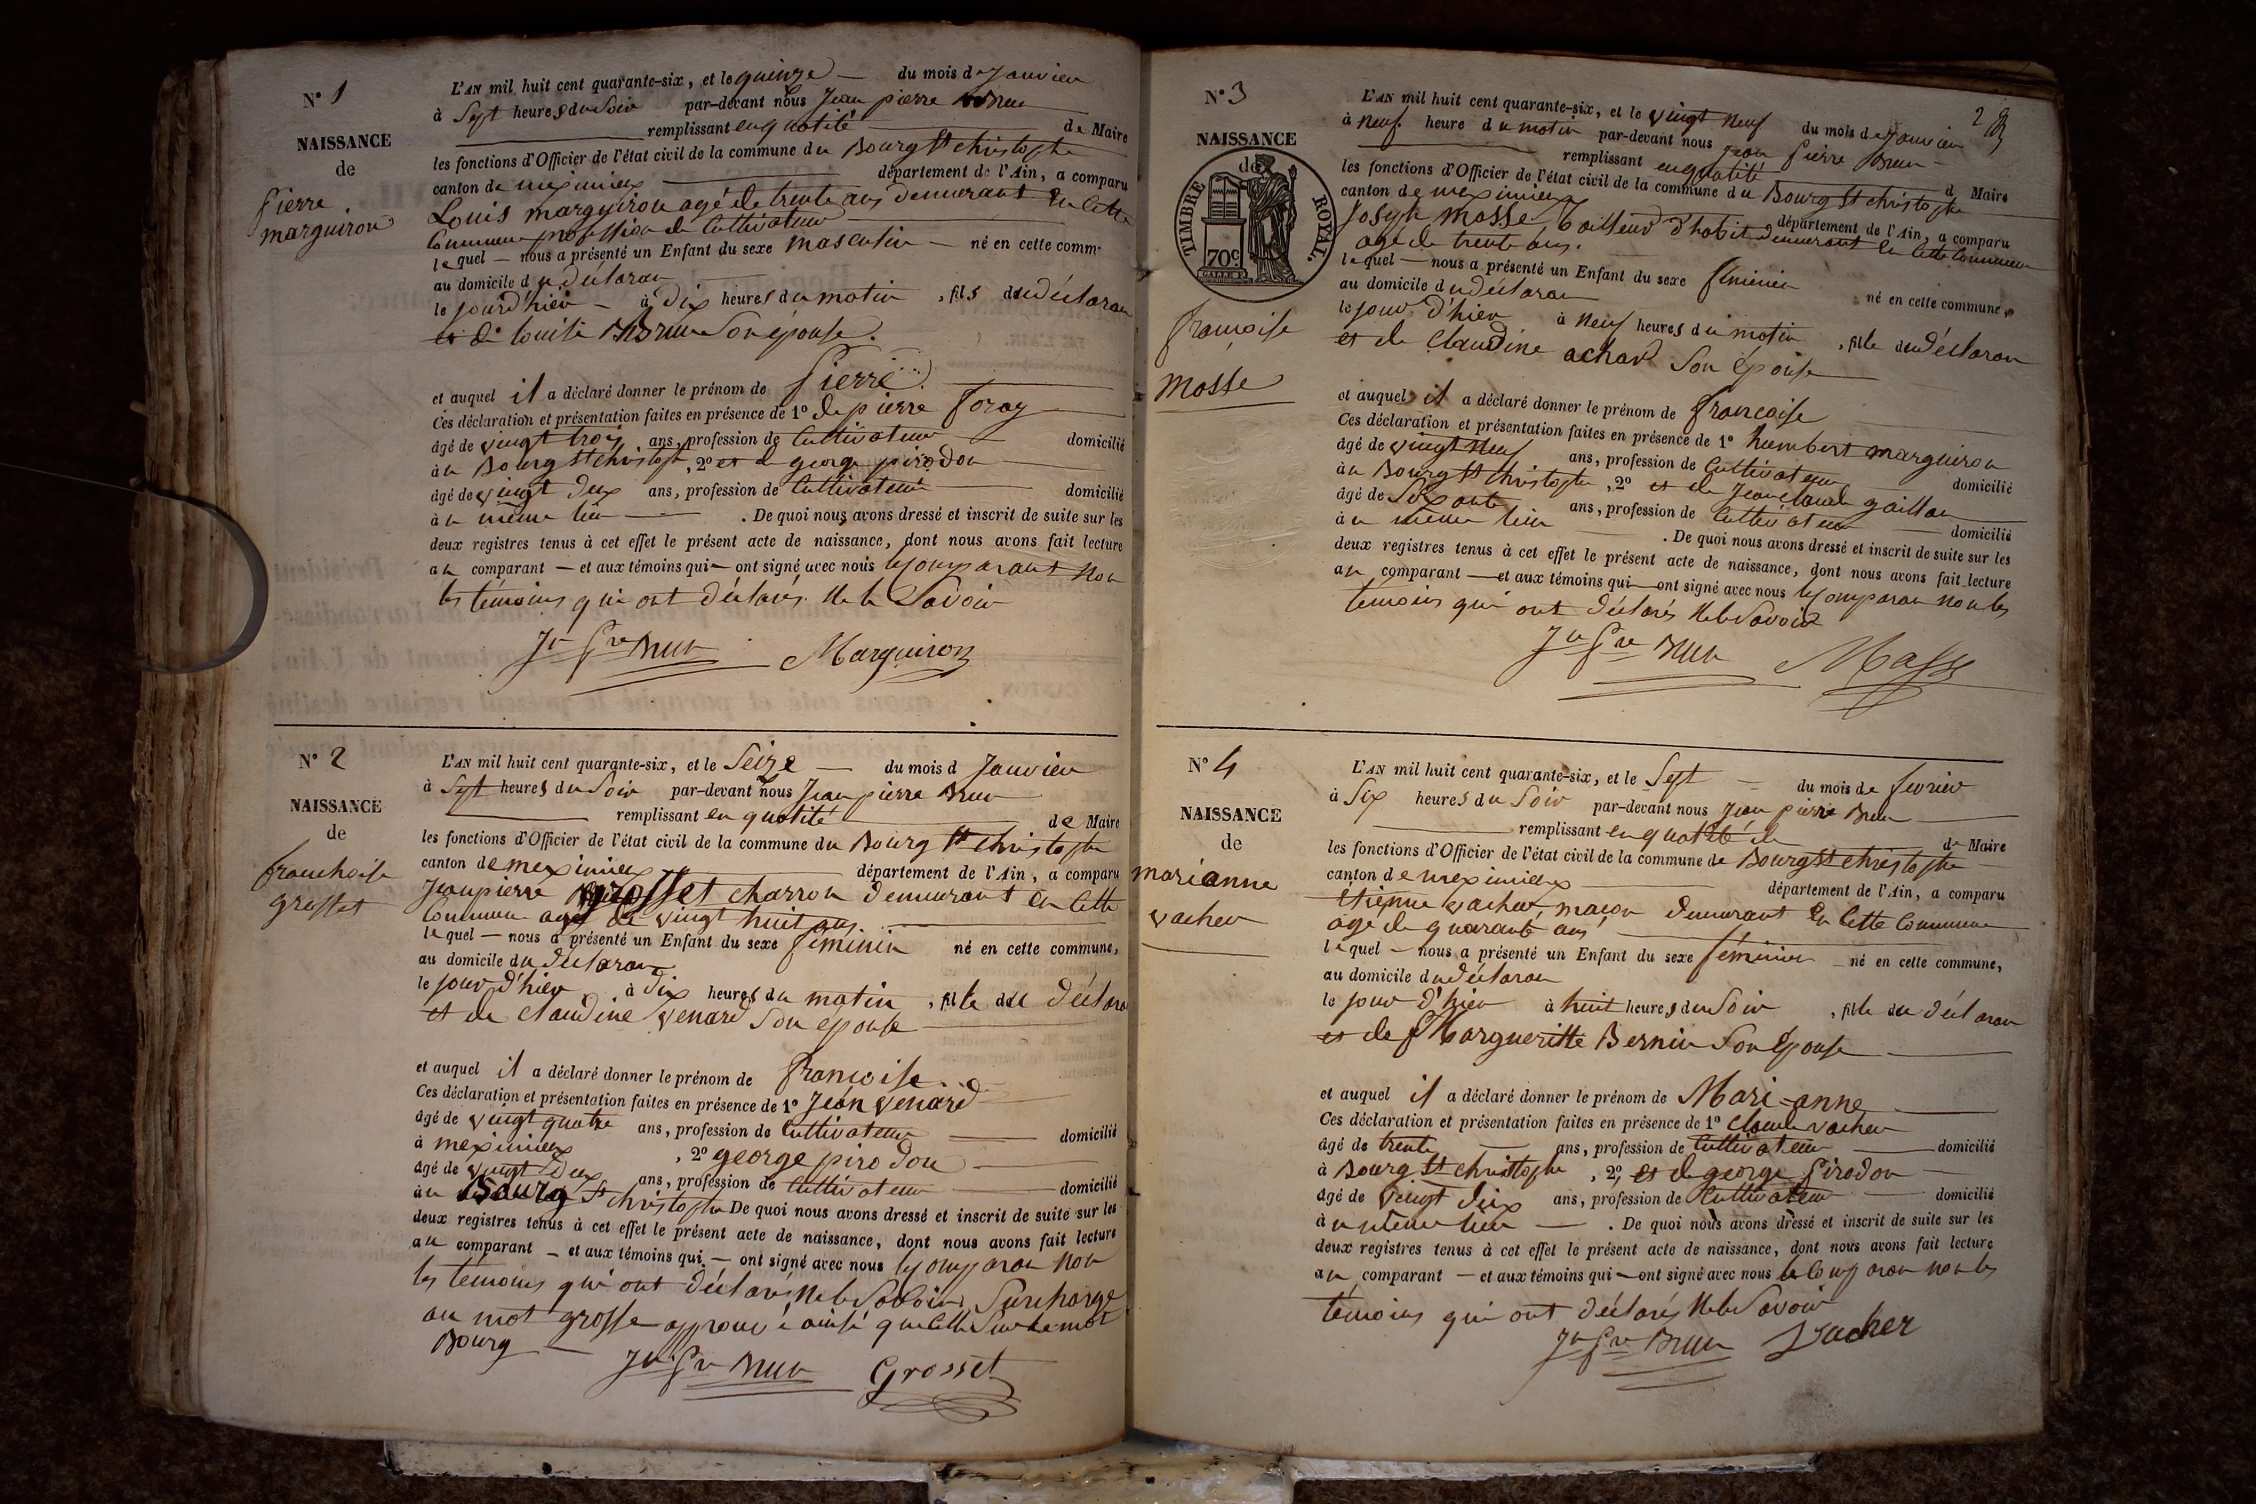 N° 1
NAISSANCE
de
pierre
marguiron
L'AN mil huit cent quarante-six, et le quinze du mois de Janvier
à Sept heures du Soir par-devant nous Jean pierre Brun
remplissant en quatité de Maire
les fonctions d'Officier de l'état civil de la commune du Bourg St christophe
canton de meximieux département de l'Ain, a comparu
Louis marguiron agé de trente ans demeurant En Cette
Commune profession de Cultivateur
lequel — nous a présenté un Enfant du sexe masculin né en cette comm-
au domicile du déclaran
le jour d'hier à dix heures du matin, fils du déclaran
et de Son épouse.
et auquel il a déclaré donner le prénom de Pierre
Ces déclaration et présentation faites en présence de 1° de pierre foray
âgé de vingt trois ans, profession de Cultivateur domicilié
à u Bourg St christophe, 2° et de george pirodon
âgé de vingt deux ans, profession de Cultivateur domicilié
à u même lieu. De quoi nous avons dressé et inscrit de suite sur les
deux registres tenus à cet effet le présent acte de naissance, dont nous avons fait lecture
au comparant — et aux témoins qui — ont signé avec nous le Comparant non
les témoins qui ont déclarés Ne le Savoir
Jn Pre Brun Marguiron
N° 2
NAISSANCE
de
franchoise
grosset
L'AN mil huit cent quarante-six, et le Seize du mois d Janvier
à Sept heures du Soir par-devant nous Jean pierre Brun
remplissant en quatité de Maire
les fonctions d'Officier de l'état civil de la commune du Bourg St christophe
canton de meximieux département de l'Ain, a comparu
Jean pierre grosset charron demeurant en Cette
Commune agé de vingt huit ans
lequel — nous a présenté un Enfant du sexe féminin né en cette commune,
au domicile du déclaran
le jour d'hier à dix heures du matin, fille du déclara
et de claudine venard Son épouse
et auquel il a déclaré donner le prénom de françoise
Ces déclaration et présentation faites en présence de 1° Jean venard
âgé de vingt quatre ans, profession de Cultivateur domicilié
à meximieux, 2° george pirodon
âgé de vingt deux ans, profession de Cultivateur domicilié
à u Bourg St christophe De quoi nous avons dressé et inscrit de suite sur les
deux registres tenus à cet effet le présent acte de naissance, dont nous avons fait lecture
au comparant — et aux témoins qui — ont signé avec nous le Comparan non
les témoins qui ont déclarés Ne le Savoir, Surcharge
au mot grosse approuvé ainsi que Celle Sur Le mot
Bourg
Jn Pre Brun Grosset
N° 3
2
NAISSANCE
de
TIMBRE ROYAL
70c.
françoise
Mosse
L'AN mil huit cent quarante-six, et le vingt Neuf du mois de Janvier
à Neuf heure du matin par-devant nous Jean pierre Brun
remplissant en quatité d Maire
les fonctions d'Officier de l'état civil de la commune du Bourg St christophe
canton de meximieux département de l'Ain, a comparu
Joseph Mosse tailleur d'habit demeurant En Cette Commune
agé de trente ans.
lequel — nous a présenté un Enfant du sexe féminin né en cette commune,
au domicile du déclaran
le jour d'hier à Neuf heures du matin, fille du déclaran
et de Claudine achard Son épouse
et auquel il a déclaré donner le prénom de françoise
Ces déclaration et présentation faites en présence de 1° humbert marguiron
âgé de vingt Neuf ans, profession de Cultivateur domicilié
à u Bourg St christophe, 2° et de Jean Claude gaillar
âgé de Soixante ans, profession de Cultivateur domicilié
à u même lieu. De quoi nous avons dressé et inscrit de suite sur les
deux registres tenus à cet effet le présent acte de naissance, dont nous avons fait lecture
au comparant — et aux témoins qui — ont signé avec nous le Comparan non les
témoins qui ont déclarés Ne le Savoir
Jn Pre Brun Masse
N° 4
NAISSANCE
de
marianne
vacher
L'AN mil huit cent quarante-six, et le Sept du mois de fevrier
à Six heures du Soir par-devant nous Jean pierre Brun
remplissant en quatité de de Maire
les fonctions d'Officier de l'état civil de la commune de Bourg St christophe
canton de meximieux département de l'Ain, a comparu
étienne vacher, maçon demeurant En Cette Commune
agé de quarante ans
lequel — nous a présenté un Enfant du sexe féminin né en cette commune,
au domicile du déclaran
le jour d'hier à huit heures du Soir, fille du déclaran
et de Margueritte Bernin Son Epouse
et auquel il a déclaré donner le prénom de Mari-anne
Ces déclaration et présentation faites en présence de 1° Claude vacher
âgé de trente ans, profession de Cultivateur domicilié
à Bourg St christophe, 2° et de george Pirodon
âgé de vingt deux ans, profession de Cultivateur domicilié
à u même lieu. De quoi nous avons dressé et inscrit de suite sur les
deux registres tenus à cet effet le présent acte de naissance, dont nous avons fait lecture
au comparant — et aux témoins qui — ont signé avec nous le Comparan non les
témoins qui ont déclarés Ne le Savoir
Jn Pre Brun Vacher